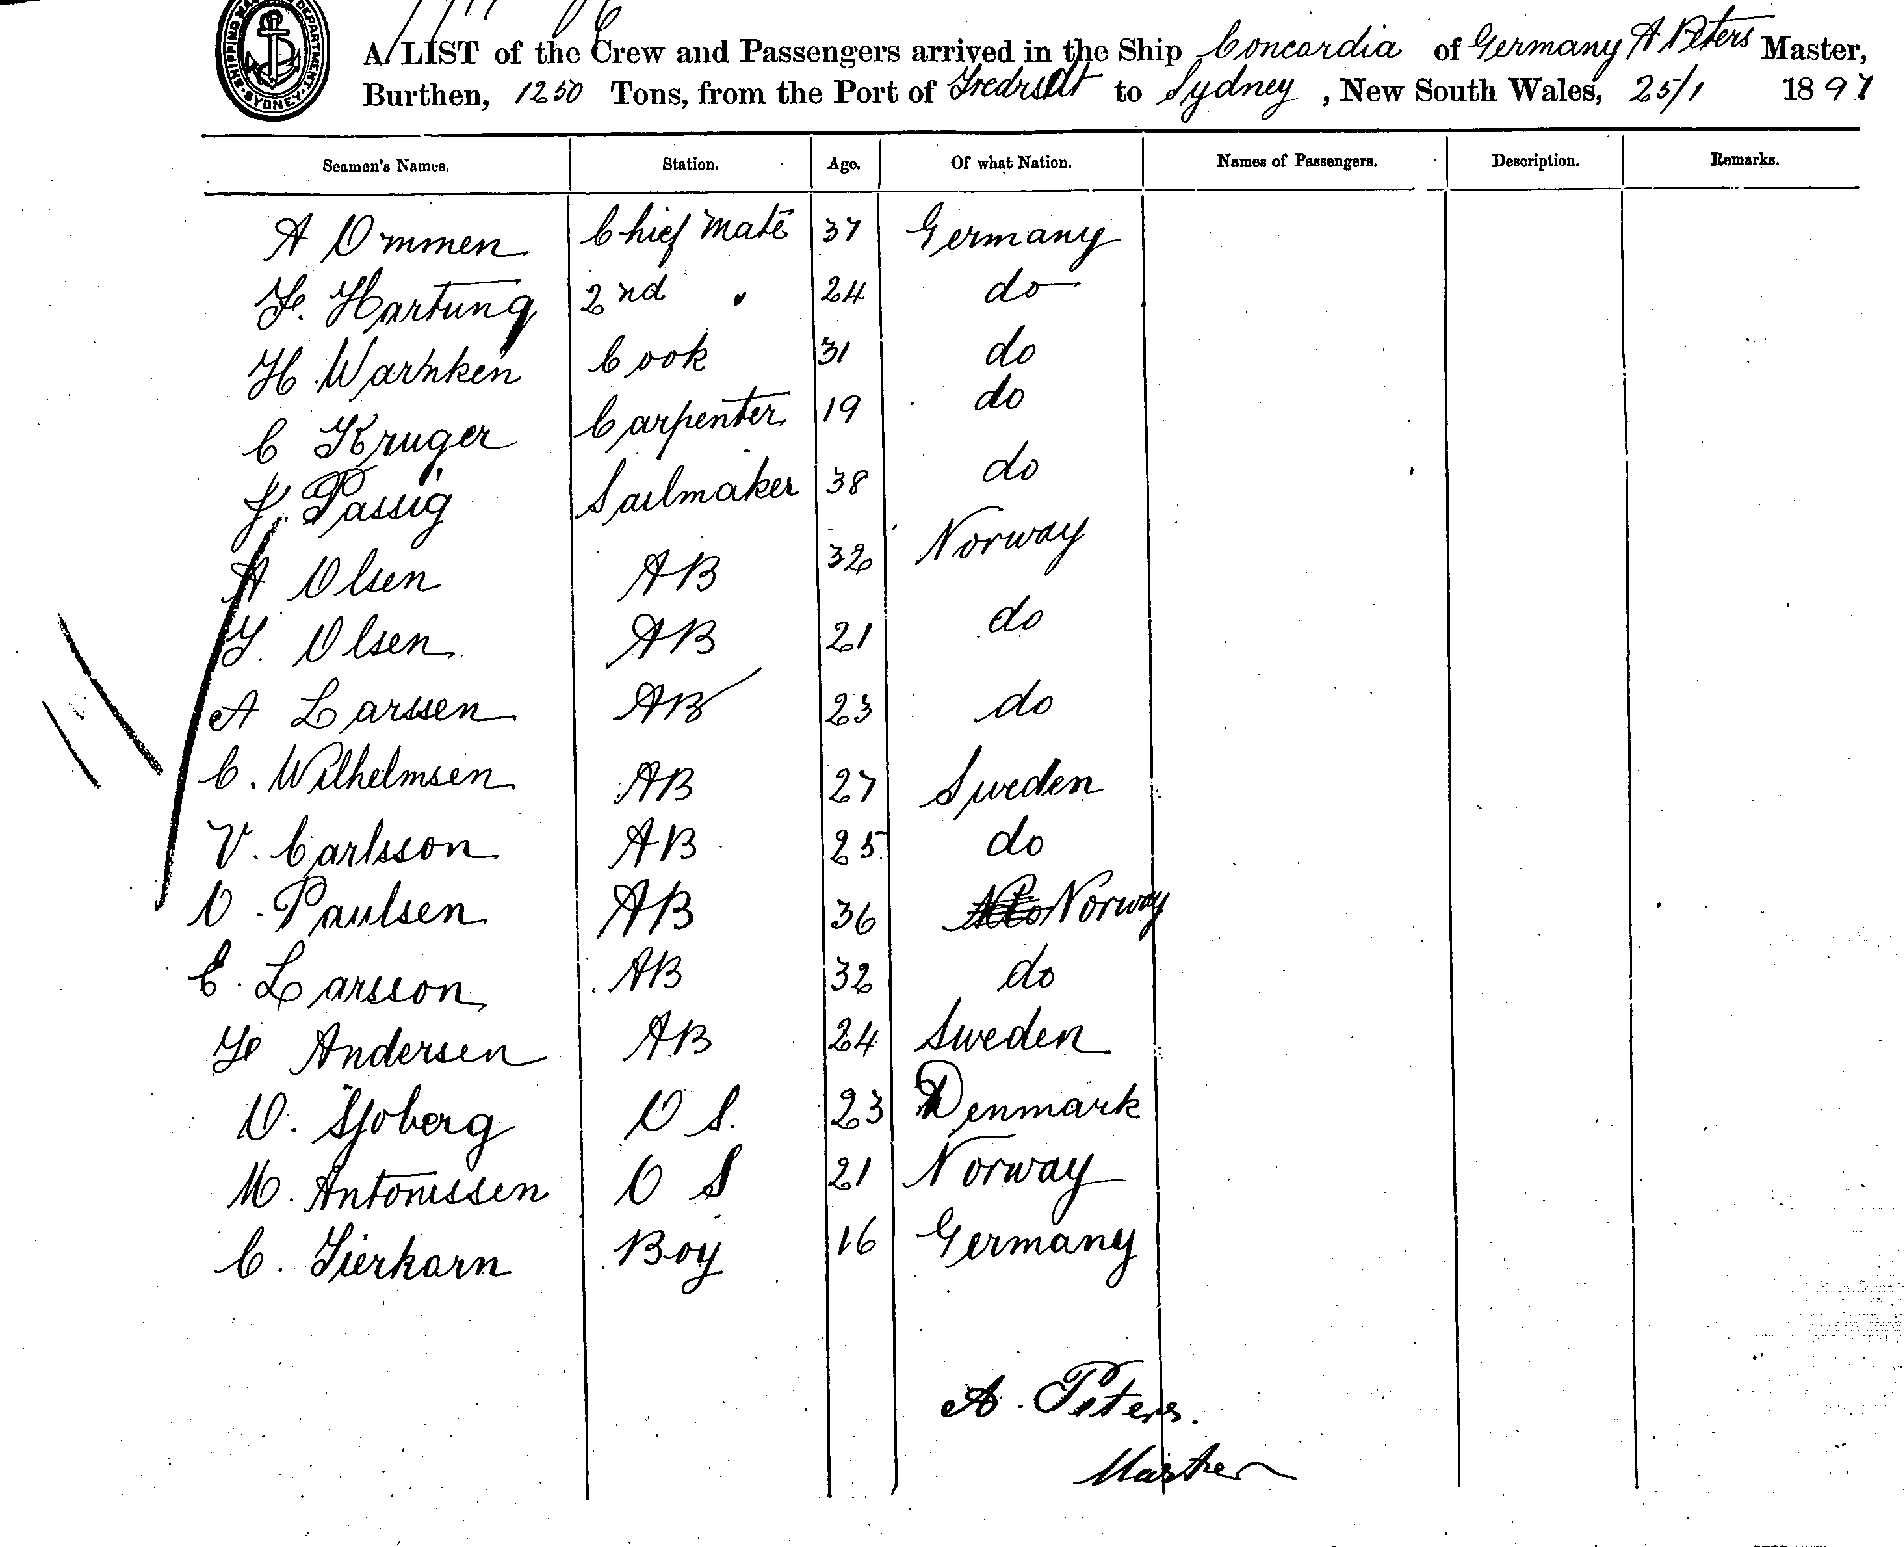 SHIPPING MASTER'S DEPARTMENT SYDNEY
A LIST of the Crew and Passengers arrived in the Ship Concordia of Germany A Peters Master,
Burthen, 1250 Tons, from the Port of Fredrstdt to Sydney, New South Wales, 25/1 1897
Seamen's Names. Station. Age. Of what Nation. Names of Passengers. Description. Remarks.
A Ommen Chief Mate 37 Germany
F. Hartung 2nd " 24 do
H Warnken Cook 31 do
C Kruger Carpenter 19 do
Passig Sailmaker 38 do
A Olsen AB 32 Norway
Olsen AB 21 do
A Larssen AB 23 do
C. Wilhelmsen AB 27 Sweden
V. Carlsson AB 25 do
O. Paulsen AB 36 Norway
E. Larsson AB 32 do
Andersen AB 24 Sweden
O. Sjoberg O S. 23 Denmark
M. Antonissen O S 21 Norway
C. Boy 16 Germany
A. Peters.
Master